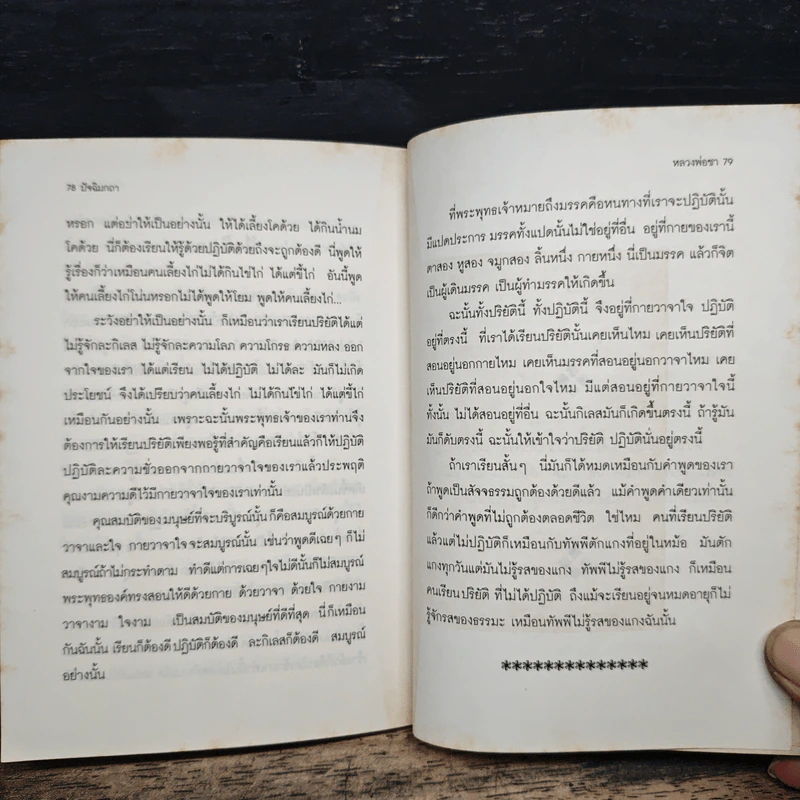 78 ปัจฉิมกถา
หรอก แต่อย่าให้เป็นอย่างนั้น ให้ได้เลี้ยงโคด้วย ได้กินน้ำนม
โคด้วย นี่ก็ต้องเรียนให้รู้ด้วยปฏิบัติด้วยถึงจะถูกต้องดี นี่พูดให้
รู้เรื่องก็ว่าเหมือนคนเลี้ยงไก่ไม่ได้กินไข่ไก่ ได้แต่ขี้ไก่ อันนี้พูด
ให้คนเลี้ยงไก่โน่นหรอกไม่ได้พูดให้โยม พูดให้คนเลี้ยงไก่...
ระวังอย่าให้เป็นอย่างนั้น ก็เหมือนว่าเราเรียนปริยัติได้แต่
ไม่รู้จักละกิเลส ไม่รู้จักละความโลภ ความโกรธ ความหลง ออก
จากใจของเรา ได้แต่เรียน ไม่ได้ปฏิบัติ ไม่ได้ละ มันก็ไม่เกิด
ประโยชน์ จึงได้เปรียบว่าคนเลี้ยงไก่ ไม่ได้กินไข่ไก่ ได้แต่ขี้ไก่
เหมือนกันอย่างนั้น เพราะฉะนั้นพระพุทธเจ้าของเราท่านจึง
ต้องการให้เรียนปริยัติเพียงพอรู้ที่สำคัญคือเรียนแล้วก็ให้ปฏิบัติ
ปฏิบัติละความชั่วออกจากกายวาจาใจของเราแล้วประพฤติ
คุณงามความดีไว้มีกายวาจาใจของเราเท่านั้น
คุณสมบัติของมนุษย์ที่จะบริบูรณ์นั้น ก็คือสมบูรณ์ด้วยกาย
วาจาและใจ กายวาจาใจจะสมบูรณ์นั้น เช่นว่าพูดดีเฉยๆ ก็ไม่
สมบูรณ์ถ้าไม่กระทำตาม ทำดีแต่การเฉยๆใจไม่ดีนั้นก็ไม่สมบูรณ์
พระพุทธองค์ทรงสอนให้ดีด้วยกาย ด้วยวาจา ด้วยใจ กายงาม
วาจางาม ใจงาม เป็นสมบัติของมนุษย์ที่ดีที่สุด นี่ก็เหมือน
กันฉันนั้น เรียนก็ต้องดี ปฏิบัติก็ต้องดี ละกิเลสก็ต้องดี สมบูรณ์
อย่างนั้น
หลวงพ่อชา 79
ที่พระพุทธเจ้าหมายถึงมรรคคือหนทางที่เราจะปฏิบัตินั้น
มีแปดประการ มรรคทั้งแปดนั้นไม่ใช่อยู่ที่อื่น อยู่ที่กายของเรานี้
ตาสอง หูสอง จมูกสอง ลิ้นหนึ่ง กายหนึ่ง นี่เป็นมรรค แล้วก็จิต
เป็นผู้เดินมรรค เป็นผู้ทำมรรคให้เกิดขึ้น
ฉะนั้นทั้งปริยัตินี้ ทั้งปฏิบัตินี้ จึงอยู่ที่กายวาจาใจ ปฏิบัติ
อยู่ที่ตรงนี้ ที่เราได้เรียนปริยัตินั้นเคยเห็นไหม เคยเห็นปริยัติที่
สอนอยู่นอกกายไหม เคยเห็นมรรคที่สอนอยู่นอกวาจาไหม เคย
เห็นปริยัติที่สอนอยู่นอกใจไหม มีแต่สอนอยู่ที่กายวาจาใจนี้
ทั้งนั้น ไม่ได้สอนอยู่ที่อื่น ฉะนั้นกิเลสมันก็เกิดขึ้นตรงนี้ ถ้ารู้มัน
มันก็ดับตรงนี้ ฉะนั้นให้เข้าใจว่าปริยัติ ปฏิบัตินั่นอยู่ตรงนี้
ถ้าเราเรียนสั้นๆ นี่มันก็ได้หมดเหมือนกับคำพูดของเรา
ถ้าพูดเป็นสัจจธรรมถูกต้องด้วยดีแล้ว แม้คำพูดคำเดียวเท่านั้น
ก็ดีกว่าคำพูดที่ไม่ถูกต้องตลอดชีวิต ใช่ไหม คนที่เรียนปริยัติ
แล้วแต่ไม่ปฏิบัติก็เหมือนกับทัพพีตักแกงที่อยู่ในหม้อ มันตัก
แกงทุกวันแต่มันไม่รู้รสของแกง ทัพพีไม่รู้รสของแกง ก็เหมือน
คนเรียนปริยัติ ที่ไม่ได้ปฏิบัติ ถึงแม้จะเรียนอยู่จนหมดอายุก็ไม่
รู้จักรสของธรรมะ เหมือนทัพพีไม่รู้รสของแกงฉันนั้น
**************